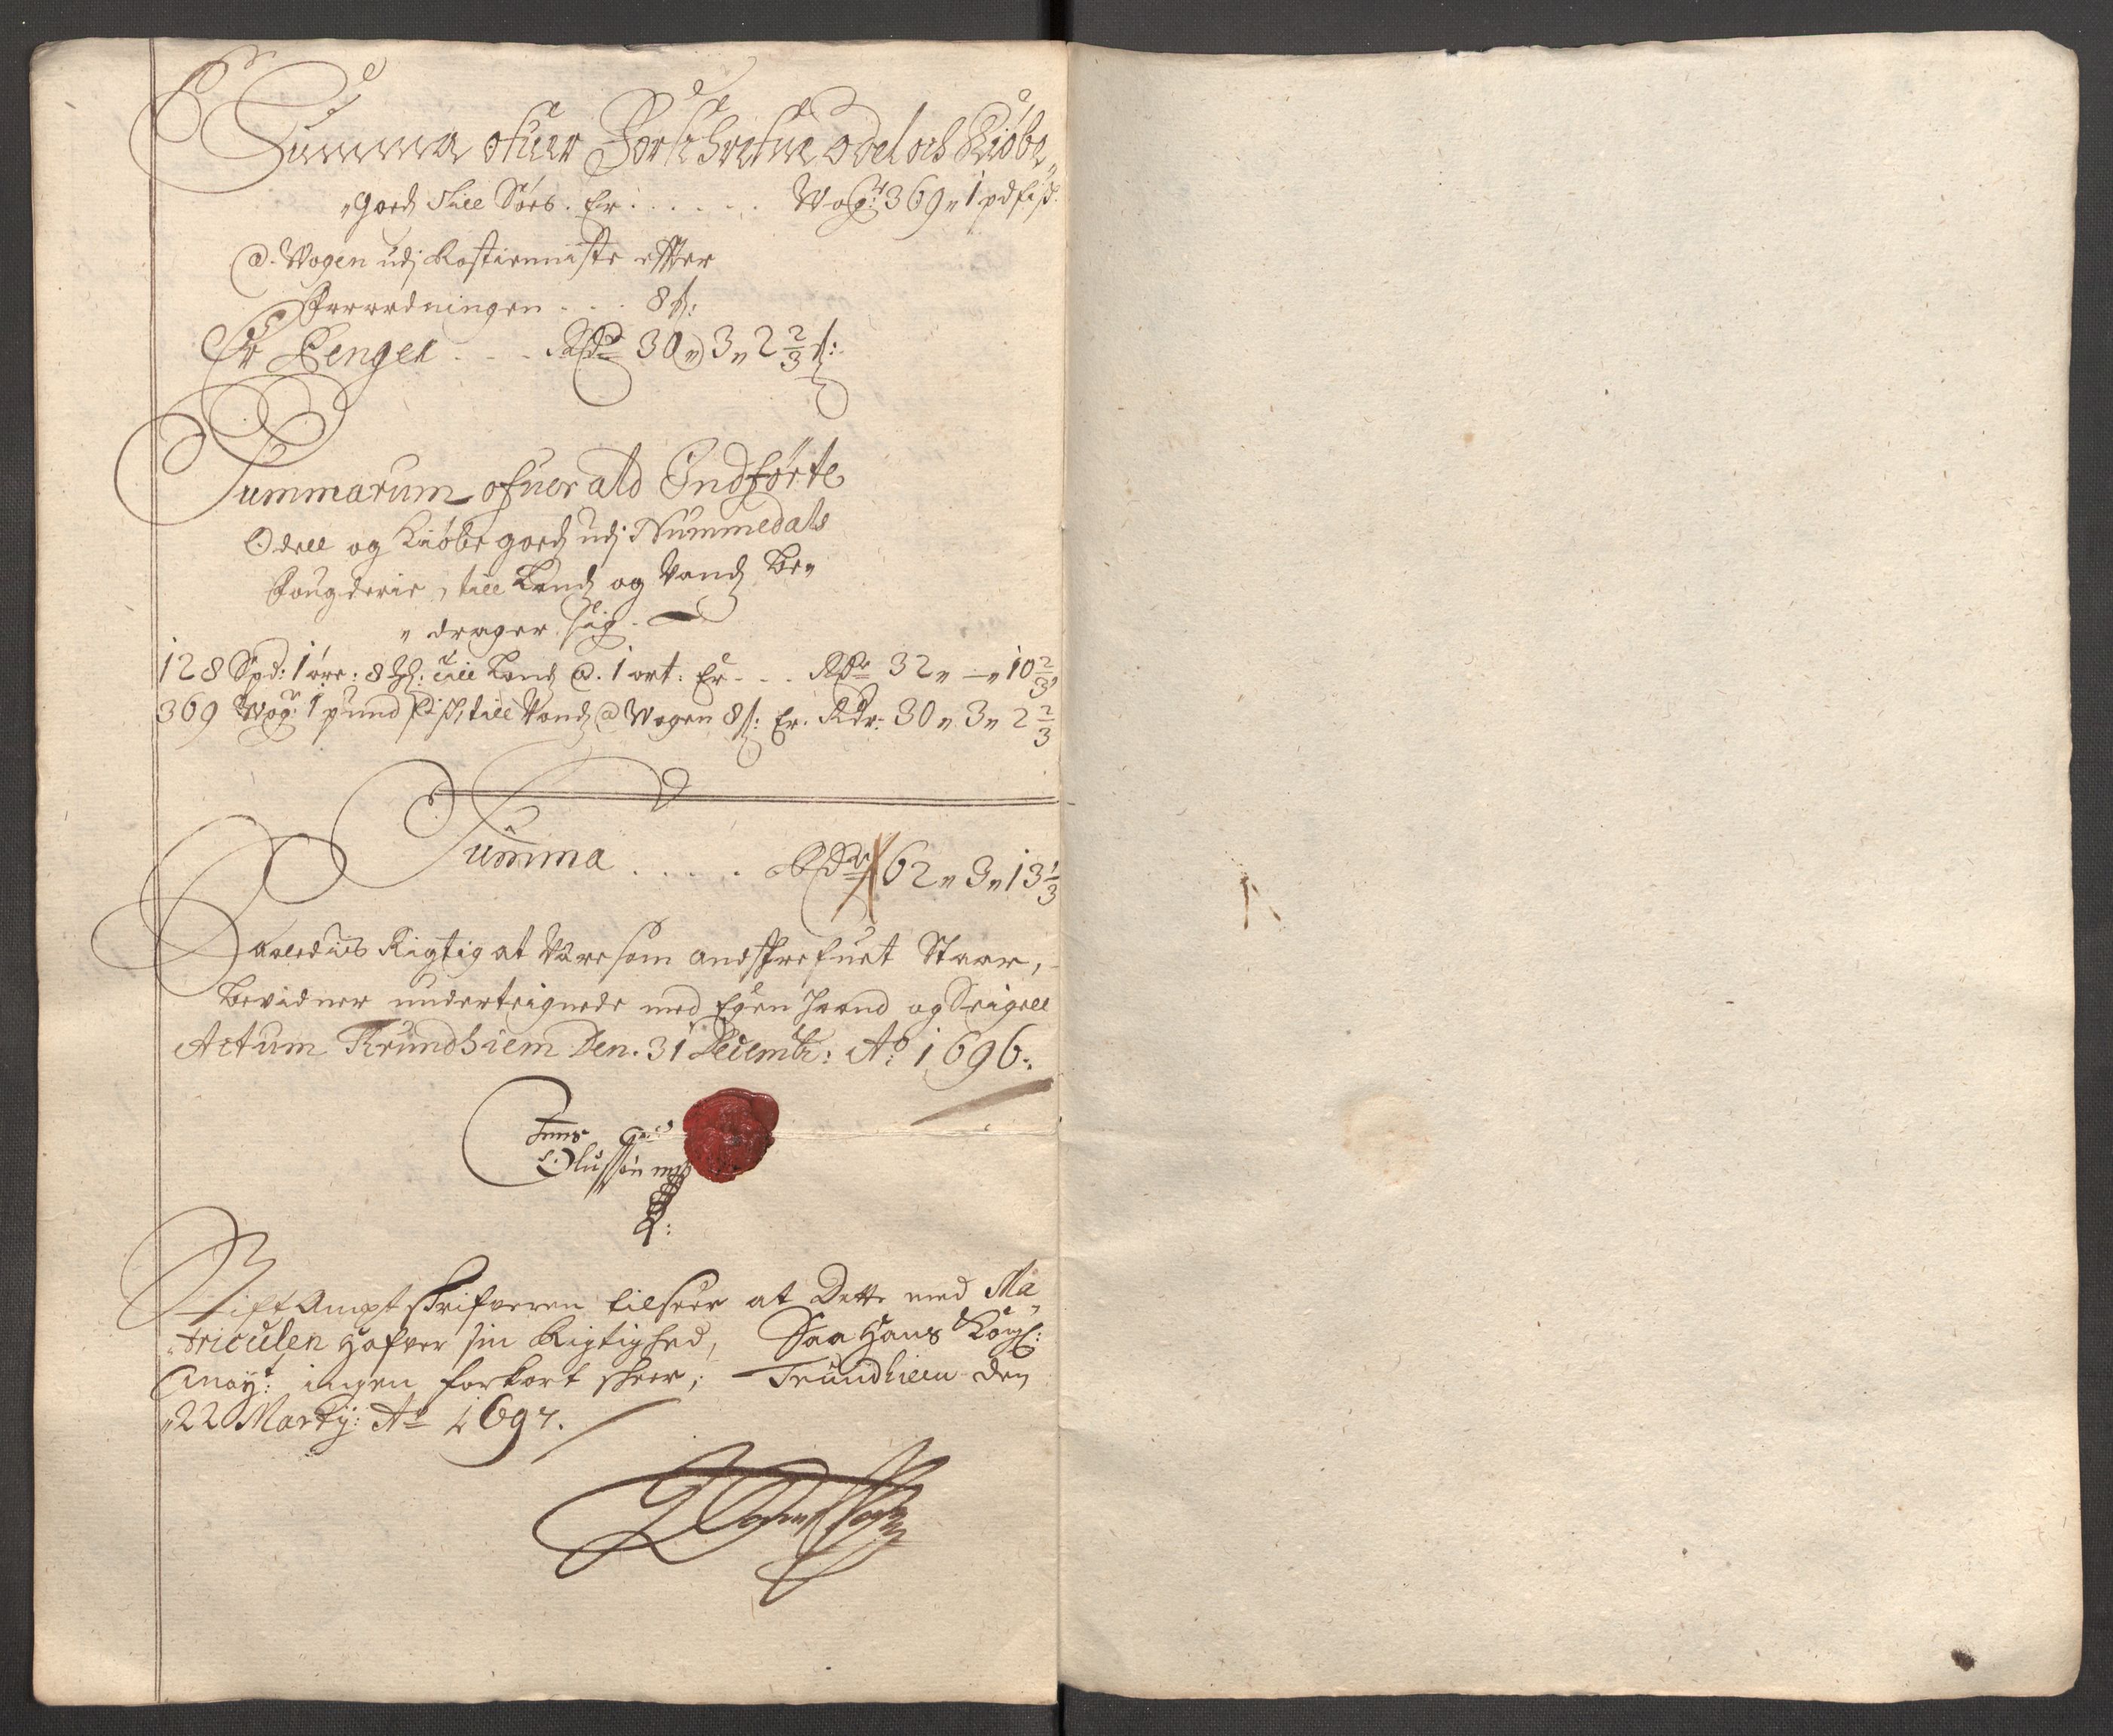 Summa ofuer Forschrefne odel och Kiøbe„
„gord till Søes. Er . . . . . . Wog: 369„ 1 pd fisk
@. Wogen udj Rostienniste efter
Forordningen . . . 8 s:
Er Penger . . . Rdr 30„ 3„ 2 2/3 s:
Summarum ofuer ald Indførte
Odell og Kiøbe gord udj Nummedals
Fougderie, till Land og Vand be„
„drager sig.
128 Spd: 1 øre: 8 Ml: till Land @. 1 ort: Er . . . Rdr 32„ —„ 10 2/3
369 Wog: 1 pund fisk, till Vand @ Wogen 8 s: Er. Rdr: 30„ 3„ 2 2/3
Summa . . . . . Rdr 62„ 3„ 13 1/3
Saaledis Rigtig at Være som andskrefuet Staar,
bevidner underteignede med Egen Haand og Seigell
Actum Trundhiem Den. 31 Decembr: Ao: 1696:
Jens
Olussøn mp
Stift Ampt skrifveren tilseer at Dette med Ma„
„triculen hafver sin Rigtighed, Saa Hans Kongl:
Mayt: ingen forkort skeer; Trundhiem den
„22 Marty: Ao 1697.